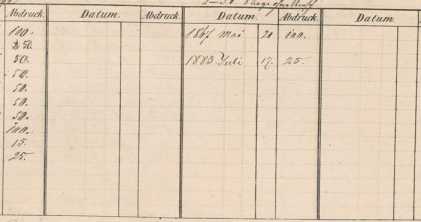 Abdruck. Datum. Abdruck. Datum. Abdruck. Datum.
100. 1867 Mai 20 100.
50.
50. 1883 Juli 17. 25.
50.
50.
50.
50.
100.
15.
25.